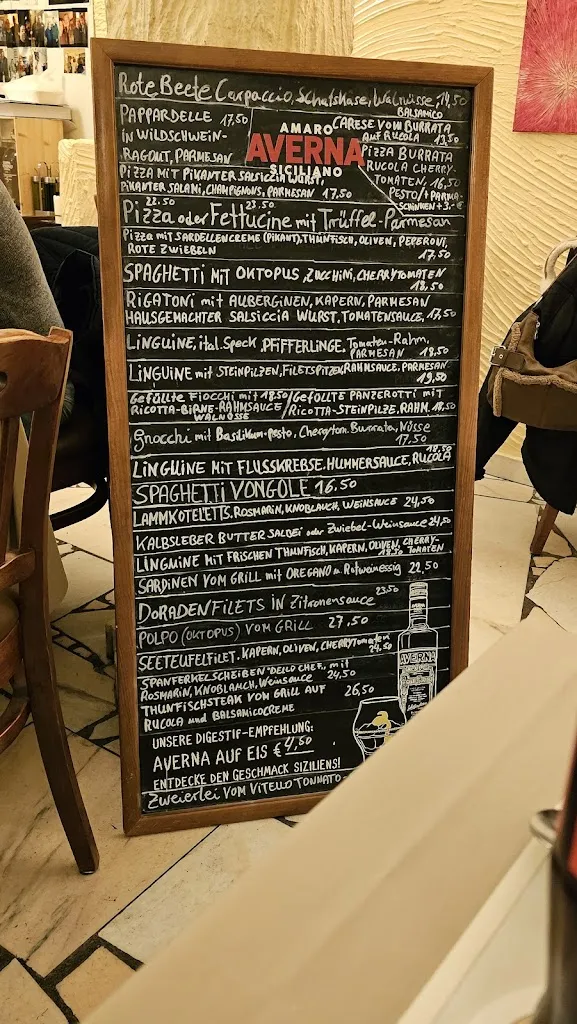 Rote Beete Carpaccio, Schafskäse, Walnüsse, 14,50
BALSAMICO
PAPPARDELLE 17,50
IN WILDSCHWEIN-
RAGOUT, PARMESAN
AMARO
AVERNA
SICILIANO
CARESE VOM BURRATA
AUF RUCOLA 13,50
PIZZA BURRATA
RUCOLA CHERRY-
TOMATEN, 16,50
PESTO/+PARMA-
SCHINKEN +3.-€
PIZZA MIT PIKANTER SALSICCIA WURST,
PIKANTER SALAMI, CHAMPIGNONS, PARMESAN 17,50
22.50 23.50
Pizza oder Fettucine mit Trüffel-Parmesan
Pizza mit SARDELLENCREME (PIKANT), THUNFISCH, OLIVEN, PEPERONI,
ROTE ZWIEBELN 17,50
SPAGHETTI MIT OKTOPUS, ZUCCHINI, CHERRYTOMATEN
18,50
RIGATONI mit AUBERGINEN, KAPERN, PARMESAN
HAUSGEMACHTER SALSICCIA WURST, TOMATENSAUCE, 17,50
LINGUINE, ital. Speck, PFIFFERLINGE, Tomaten-Rahm,
PARMESAN 18,50
LINGUINE mit STEINPILZEN, FILETSPITZEN, RAHMSAUCE, PARMESAN
19,50
GEFÜLLTE FIOCCHI mit 18.50/GEFÜLLTE PANZEROTTI MIT
RICOTTA-BIRNE-RAHMSAUCE/RICOTTA-STEINPILZE, RAHM. 18,50
WALNÜSSE
Gnocchi mit Basilikum-pesto, Cherrytom. Burrata, Nüsse
17,50
LINGUINE MIT FLUSSKREBSE, HUMMERSAUCE, RUCOLA
SPAGHETTI VONGOLE 16.50
LAMMKOTELETTS, ROSMARIN, KNOBLAUCH, WEINSAUCE 24,50
KALBSLEBER BUTTER SALBEI oder Zwiebel-Weinsauce 24,50
LINGUINE MIT FRISCHEN THUNFISCH, KAPERN, OLIVEN, CHERRY-
18.50 TOMATEN
SARDINEN VOM GRILL mit OREGANO u. Rotweinessig 22,50
DORADENFILETS IN Zitronensauce 23,50
POLPO (OKTOPUS) VOM GRILL 27,50
SEETEUFELFILET, KAPERN, OLIVEN, CHERRYTOMATEN
24,50
SPANFERKELSCHEIBEN "DELLO CHEF, mit
ROSMARIN, KNOBLAUCH, Weinsauce 24,50
THUNFISCHSTEAK VOM GRILL AUF 26,50
RUCOLA und BALSAMICOCREME
AVERNA
UNSERE DIGESTIF-EMPFEHLUNG:
AVERNA AUF EIS € 4,50
ENTDECKE DEN GESCHMACK SIZILIENS!
Zweierlei VOM VITELLO TONNATO